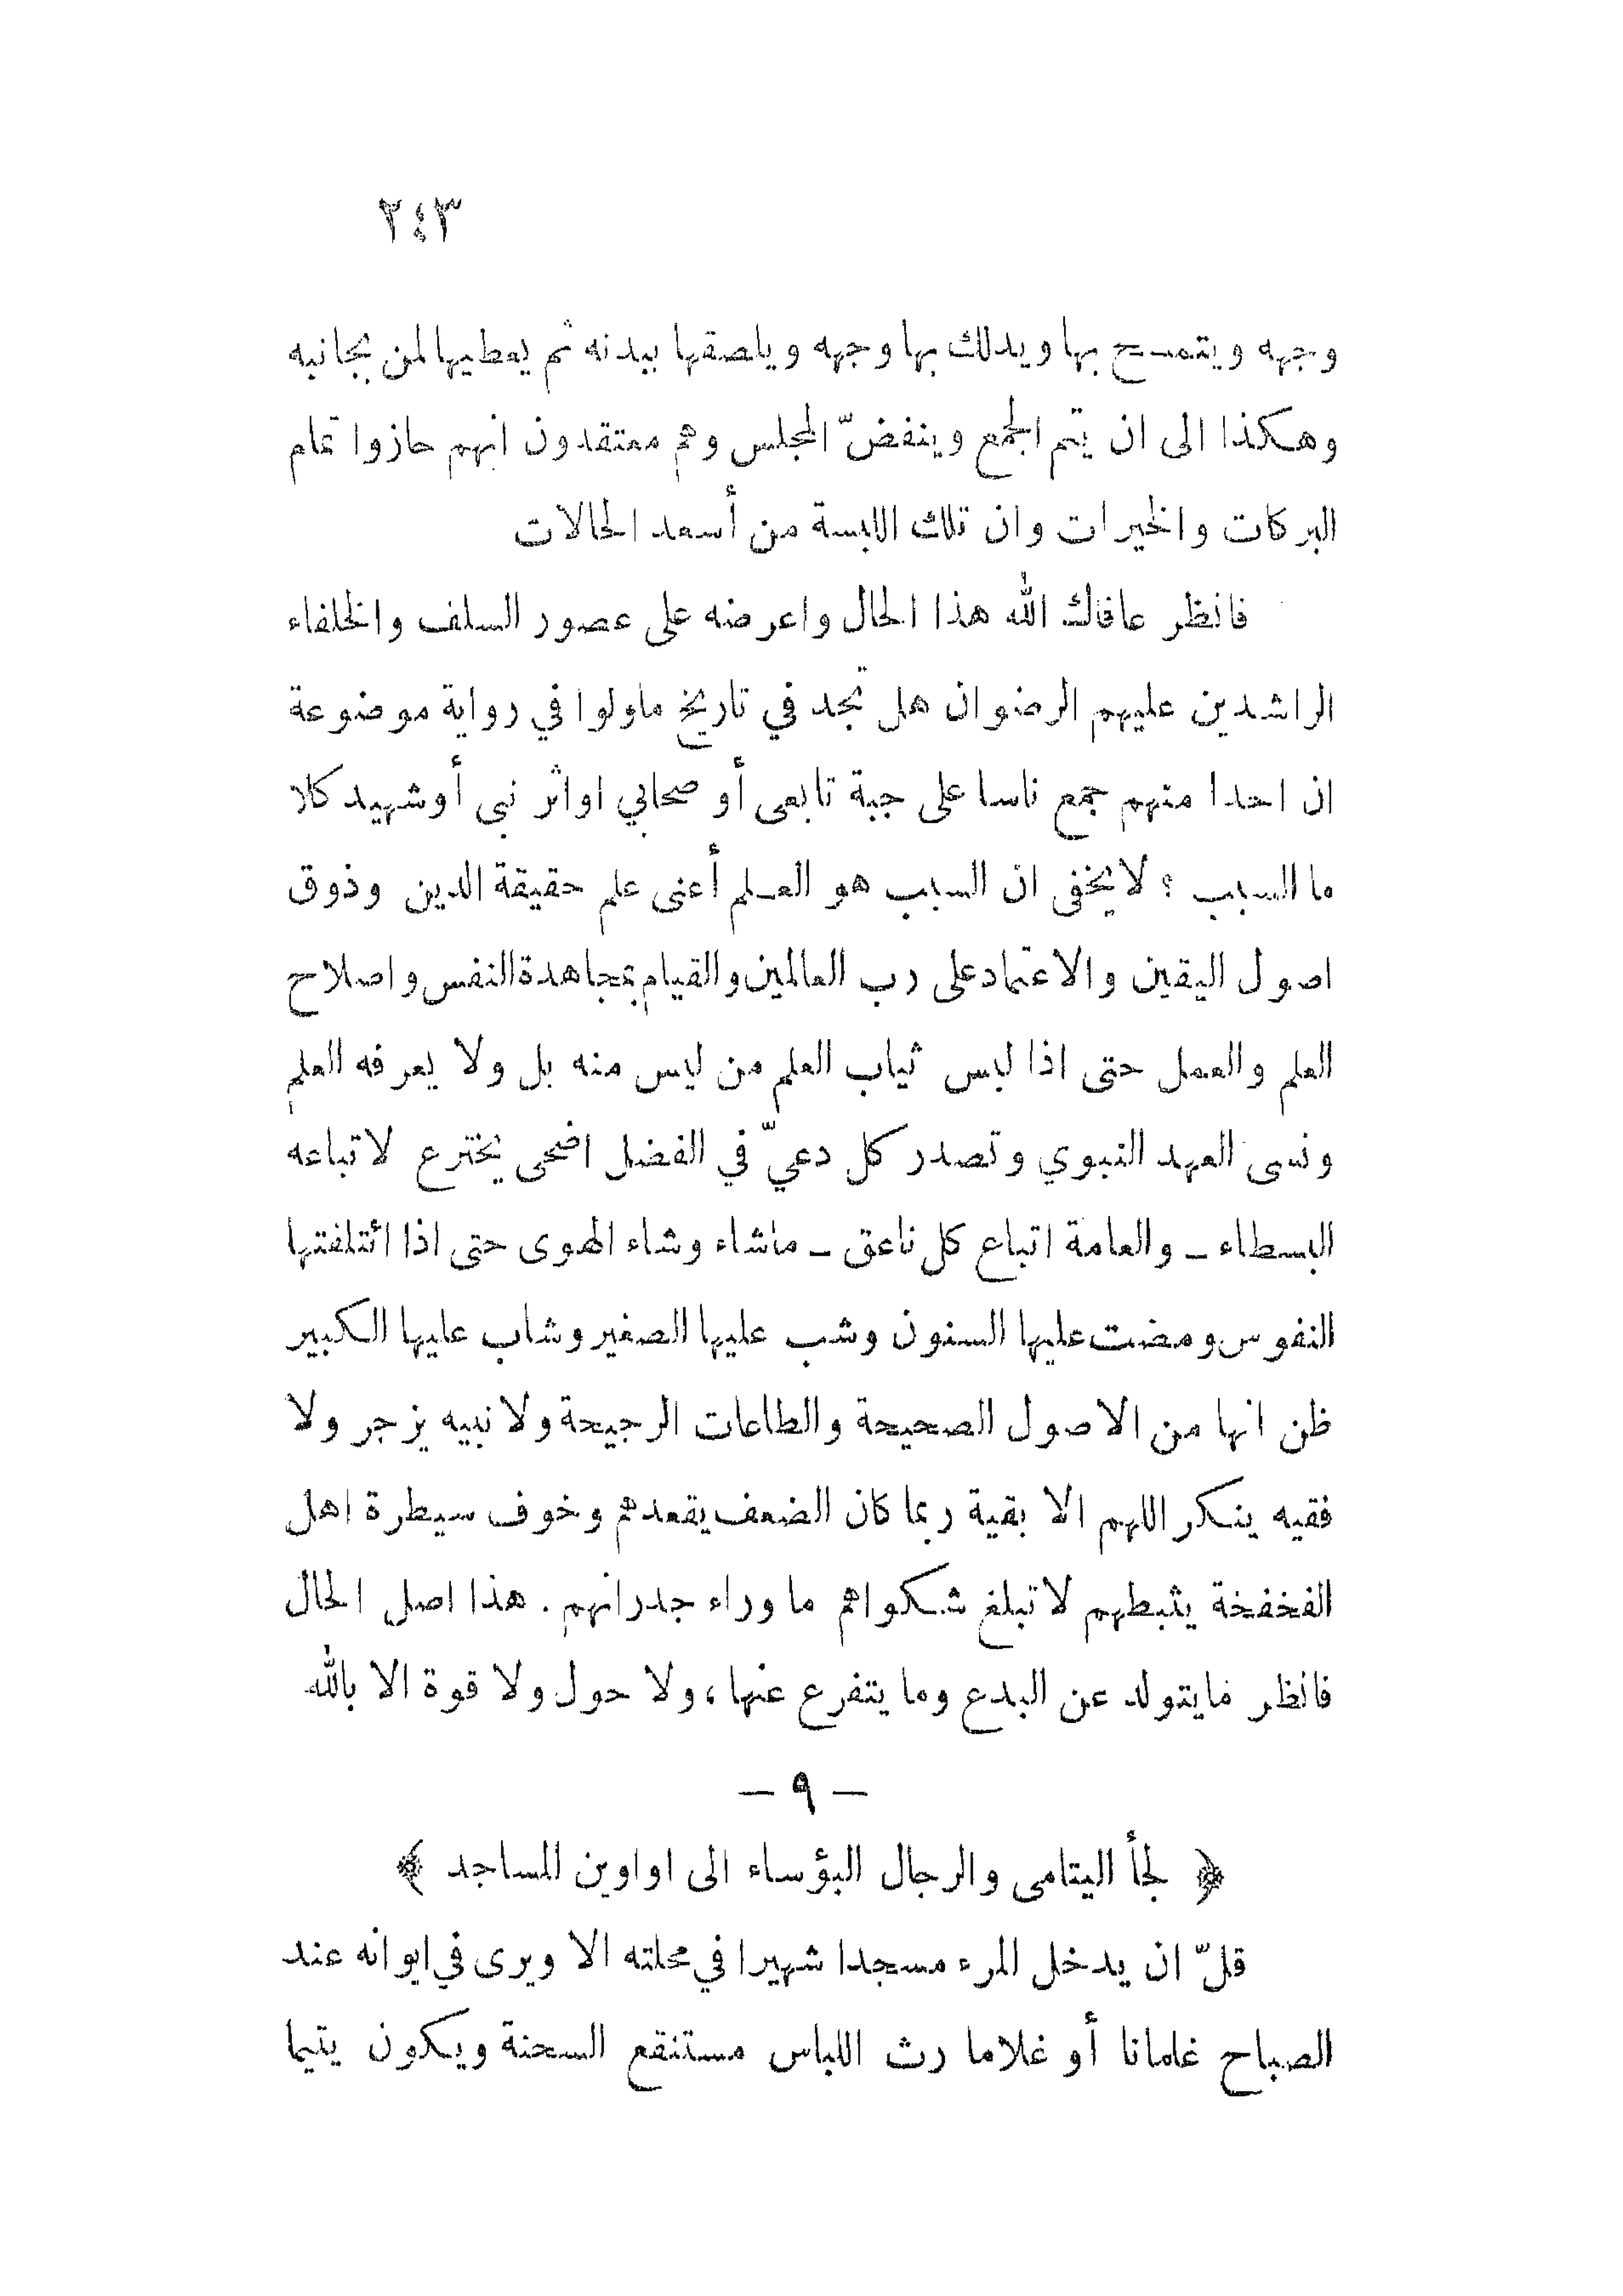 ٢٤٣
وجهه ويتمسح بها ويدلك بها وجهه ويلصقها ببدنه ثم يعطيها لمن بجانبه
وهكذا الى ان يتم الجمع وينفضّ المجلس وهم معتقدون انهم حازوا تمام
البركات والخيرات وان تلك اللابسة من أسعد الحالات
فانظر عافاك الله هذا الحال واعرضه على عصور السلف والخلفاء
الراشدين عليهم الرضوان هل تجد في تاريخ ما ولوا في رواية موضوعة
ان احدا منهم جمع ناسا على جبة تابعى أو صحابي او اثر نبى أو شهيد كلا
ما السبب ؟ لا يخفى ان السبب هو العلم أعنى علم حقيقة الدين وذوق
اصول اليقين والاعتماد على رب العالمين والقيام بمجاهدة النفس واصلاح
العلم والعمل حتى اذا لبس ثياب العلم من ليس منه بل ولا يعرفه العلم
ونسى العهد النبوي وتصدر كل دعيّ في الفضل اضحى يخترع لاتباعه
البسطاء ــ والعامة اتباع كل ناعق ــ ماشاء وشاء الهوى حتى اذا ائتلفتها
النفوس ومضت عليها السنون وشب عليها الصغير وشاب عليها الكبير
ظن انها من الاصول الصحيحة والطاعات الرجيحة ولا نبيه يزجر ولا
فقيه ينكر اللهم الا بقية ربما كان الضعف يقعدهم وخوف سيطرة اهل
الفخفخة يثبطهم لا تبلغ شكواهم ما وراء جدرانهم . هذا اصل الحال
فانظر مايتولد عن البدع وما يتفرع عنها ، ولا حول ولا قوة الا بالله
— ٩ —
﴿ لجأ اليتامى والرجال البؤساء الى اواوين المساجد ﴾
قلّ ان يدخل المرء مسجدا شهيرا في محلته الا ويرى في ايوانه عند
الصباح غلمانا أو غلاما رث اللباس مستنقع السحنة ويكون يتيما